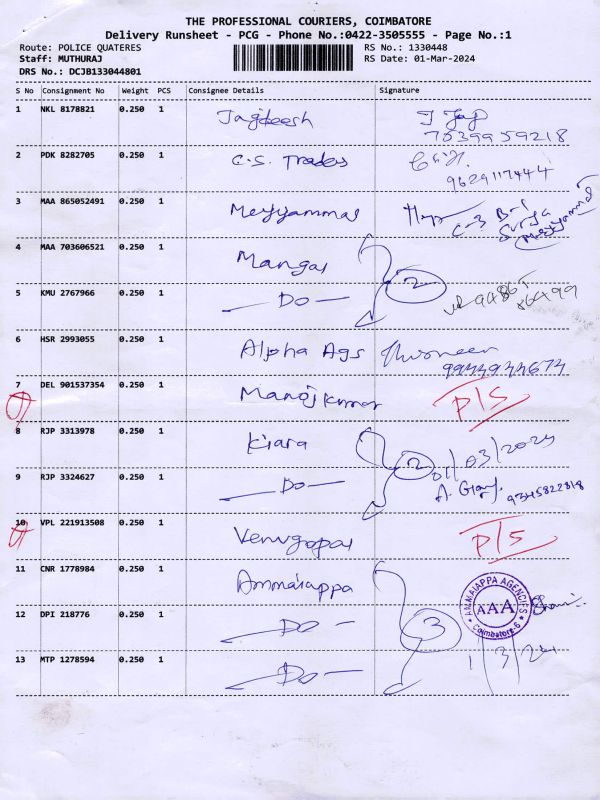 THE PROFESSIONAL COURIERS, COIMBATORE
Delivery Runsheet - PCG - Phone No.:0422-3505555 - Page No.:1
Route: POLICE QUATERES RS No.: 1330448
Staff: MUTHURAJ RS Date: 01-Mar-2024
DRS No.: DCJB133044801
S No Consignment No Weight PCS Consignee Details Signature
1 NKL 8178821 0.250 1 Jagdeesh
7539959218
2 PDK 8282705 0.250 1 C.S. Trades
9629117444
3 MAA 865052491 0.250 1 Meyyammai C-3 B-1
Surya
Meyyammai
4 MAA 703606521 0.250 1 Mangai
2
5 KMU 2767966 0.250 1 — Do —
6 HSR 2993055 0.250 1 Alpha Ags
9944944674
7 DEL 901537354 0.250 1 Manoj kumar P/S
8 RJP 3313978 0.250 1 Kiara
2 01/03/2024
9 RJP 3324627 0.250 1 — Do —
9345822818
10 VPL 221913508 0.250 1 Venugopal P/S
11 CNR 1778984 0.250 1 Ammaiappa
AMMAIAPPA AGENCIES
AAA
Coimbatore-6
12 DPI 218776 0.250 1 — Do — 3
1/3/24
13 MTP 1278594 0.250 1 — Do —